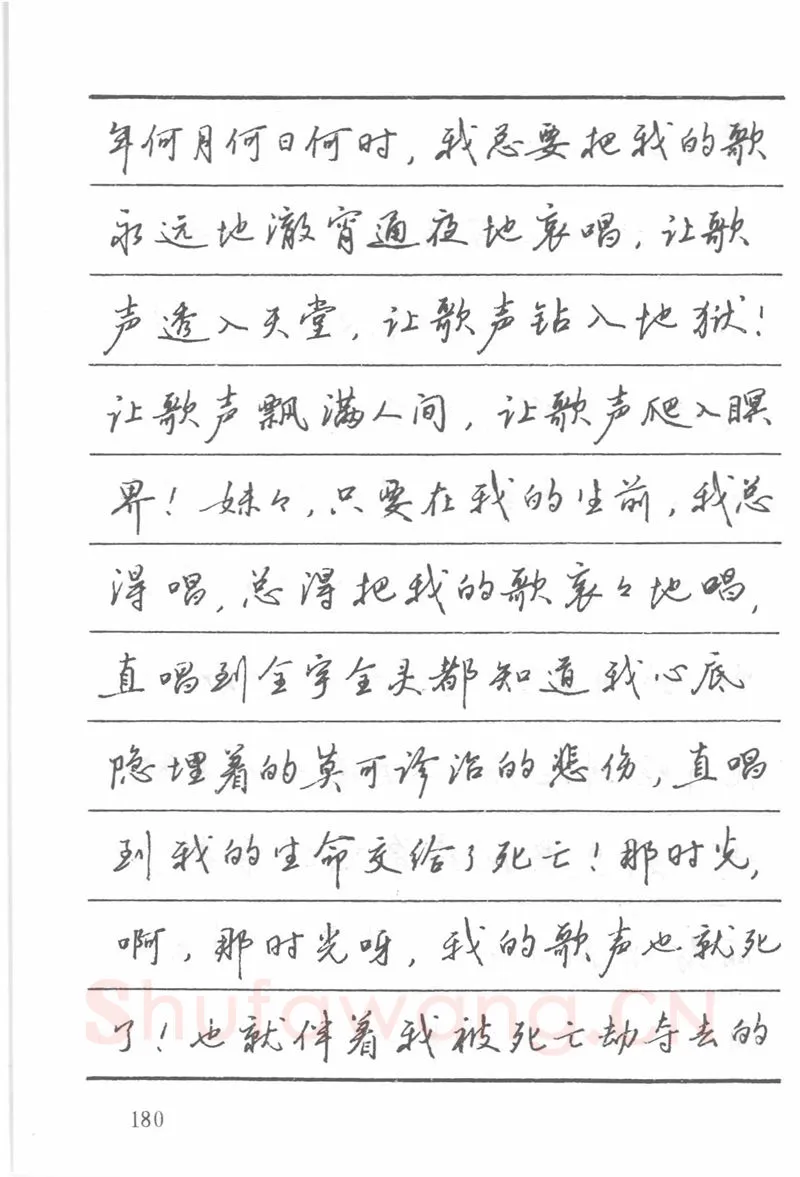 年何月何日何时，我总要把我的歌
永远地澈宵通夜地哀唱，让歌
声透入天堂，让歌声钻入地狱！
让歌声飘满人间，让歌声爬入瞑
界！妹々，只要在我的生前，我总
得唱，总得把我的歌哀々地唱，
直唱到全宇全灵都知道我心底
隐埋着的莫可诊治的悲伤，直唱
到我的生命交给了死亡！那时光，
啊，那时光呀，我的歌声也就死
了！也就伴着我被死亡劫夺去的
Shufawang.CN
180